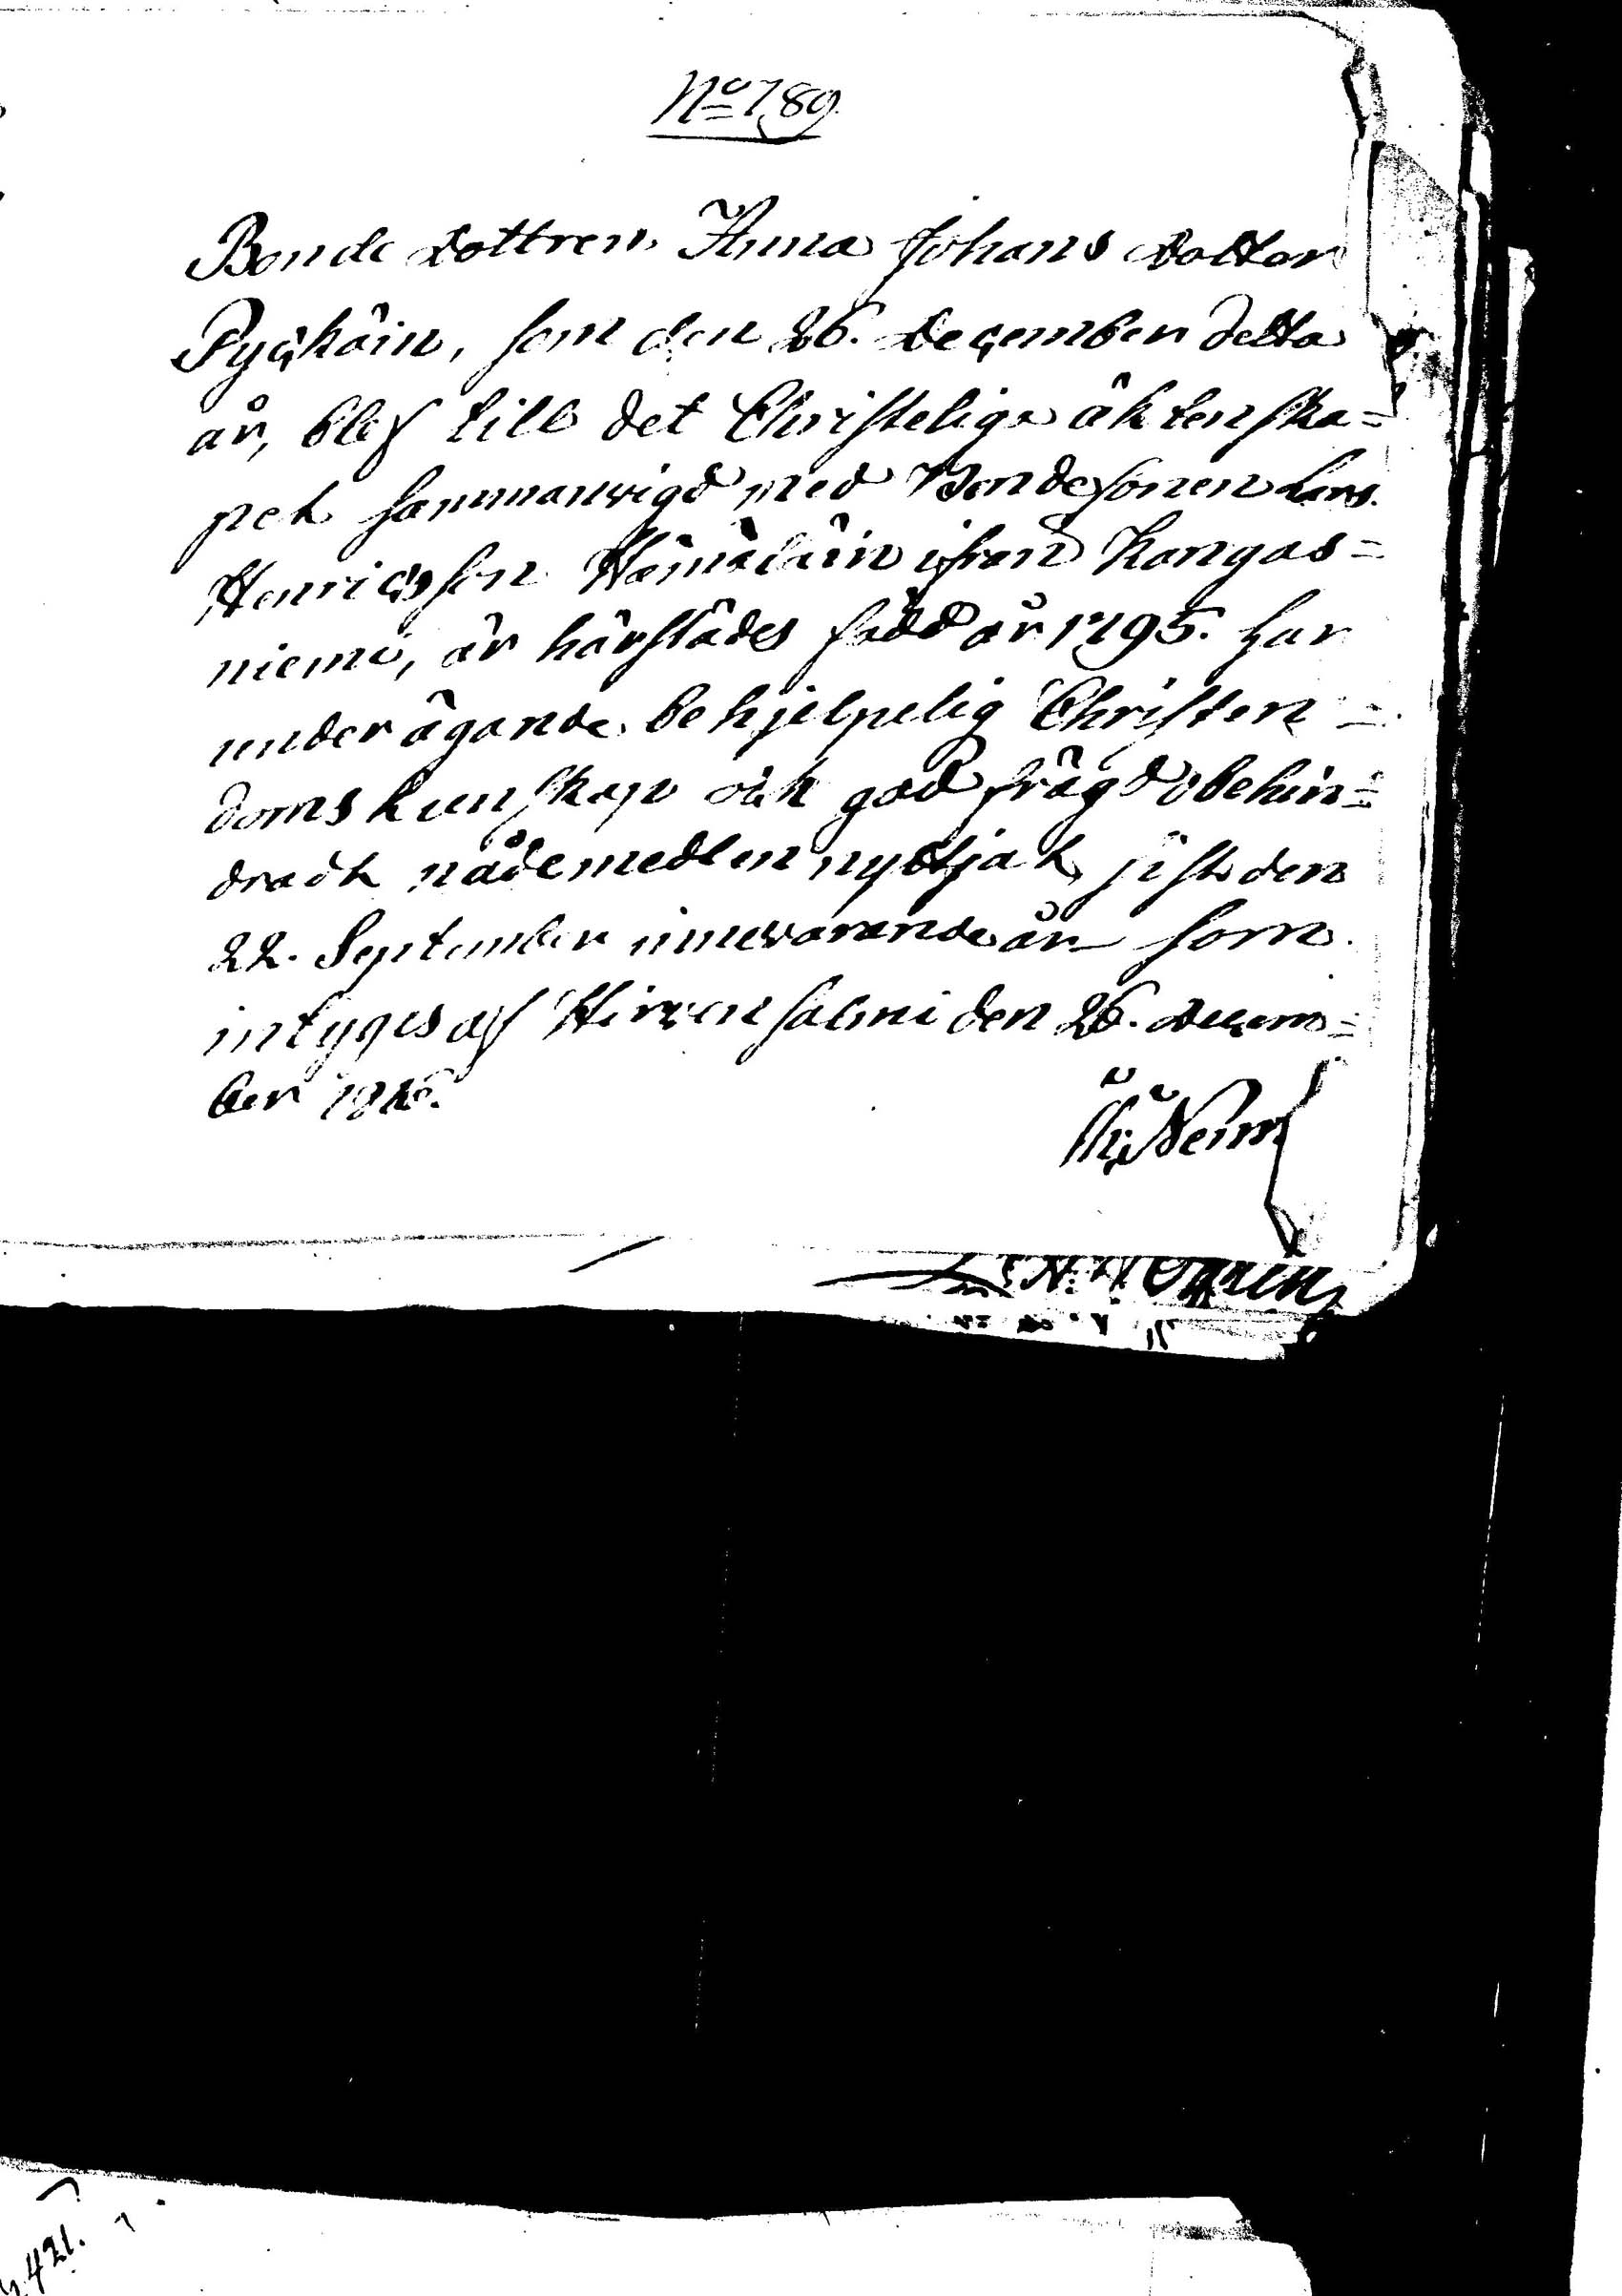 No 789
Bonde Dottren Anna Johans Dotter
Pyyköin, som den 26. December detta
år, blef till det Christeliga äktenska=
pet sammanvigd med Bondesonen Lars
Henricsson Hämäläin ifrån Kangas=
niemi, är härstädes född år 1795. har
under ägande behjelpelig Christen=
doms kunskap och god frägd obehin=
dradt nådemedlen nyttjat sist den
22. September innevarande år som
intyges af Hirvensalmi den 26. Decem=
ber
421.